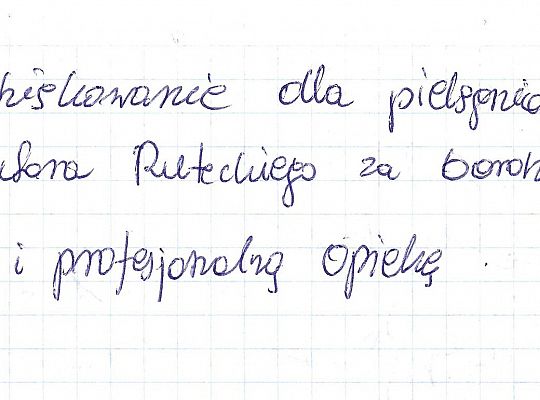 ziękowanie dla pielęgnia
Ruteckiego za
i profesjonalną opiekę.